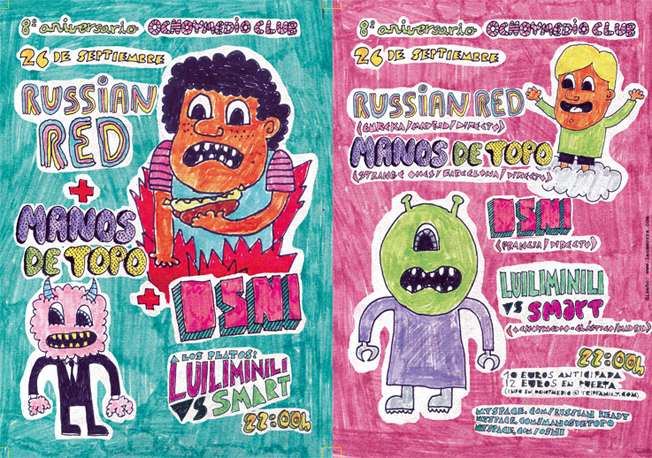 8º aniversario OCHOYMEDIO CLUB
26 DE SEPTIEMBRE
RUSSIAN
RED
+
MANOS
DE TOPO
+
DSNI
A LOS PLATOS:
LUILIMINILI
VS SMART
22:00h
8º aniversario OCHOYMEDIO CLUB
26 DE SEPTIEMBRE
RUSSIAN RED
(EUREKA/MADRID/DIRECTO)
MANOS DE TOPO
(STRANGE ONES/BARCELONA/DIRECTO)
DSNI
(FRANCIA/DIRECTO)
LUILIMINILI
VS SMART
(OCHOYMEDIO-ELÁSTICO/MADRID)
22:00h
10 EUROS ANTICIPADA
12 EUROS EN PUERTA
(INFO EN OCHOYMEDIO@TRIPFAMILY.COM)
MYSPACE.COM/RUSSIAN READY
MYSPACE.COM/MANOSDETOPO
MYSPACE.COM/DSNI